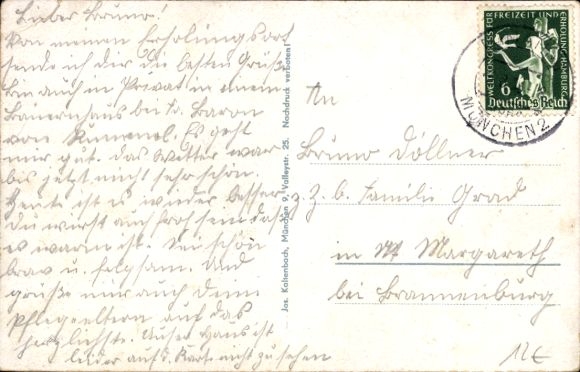 Lieber Bruno!
Von meinem Erholungsort
sende ich dir die besten Grüße
bin auch in Privat in einem
Bauernhaus bei Fr. Baron
von Kummel. Es geht
mir gut. das Wetter war
bis jetzt nicht sehr schön.
Heute ist es wieder besser
du wirst auch froh sein daß
es warm ist. Sei schön
brav u. folgsam. Und
grüße mir auch deine
Pflegeeltern auf das
herzlichste. Unser Haus ist
leider auf d. Karte nicht zu sehen
Jos. Kaltenbach, München 9, Valleystr. 25. Nachdruck verboten!
WELTKONGRESS FÜR FREIZEIT UND ERHOLUNG HAMBURG
6
Deutsches Reich
MÜNCHEN 2
An
Bruno Döllner
z. Z. b. Familie Grad
in St Margareth
bei Brannenburg
12€